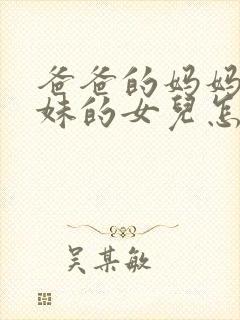 爸爸的妈妈
妹的女兒怎
吴某敏